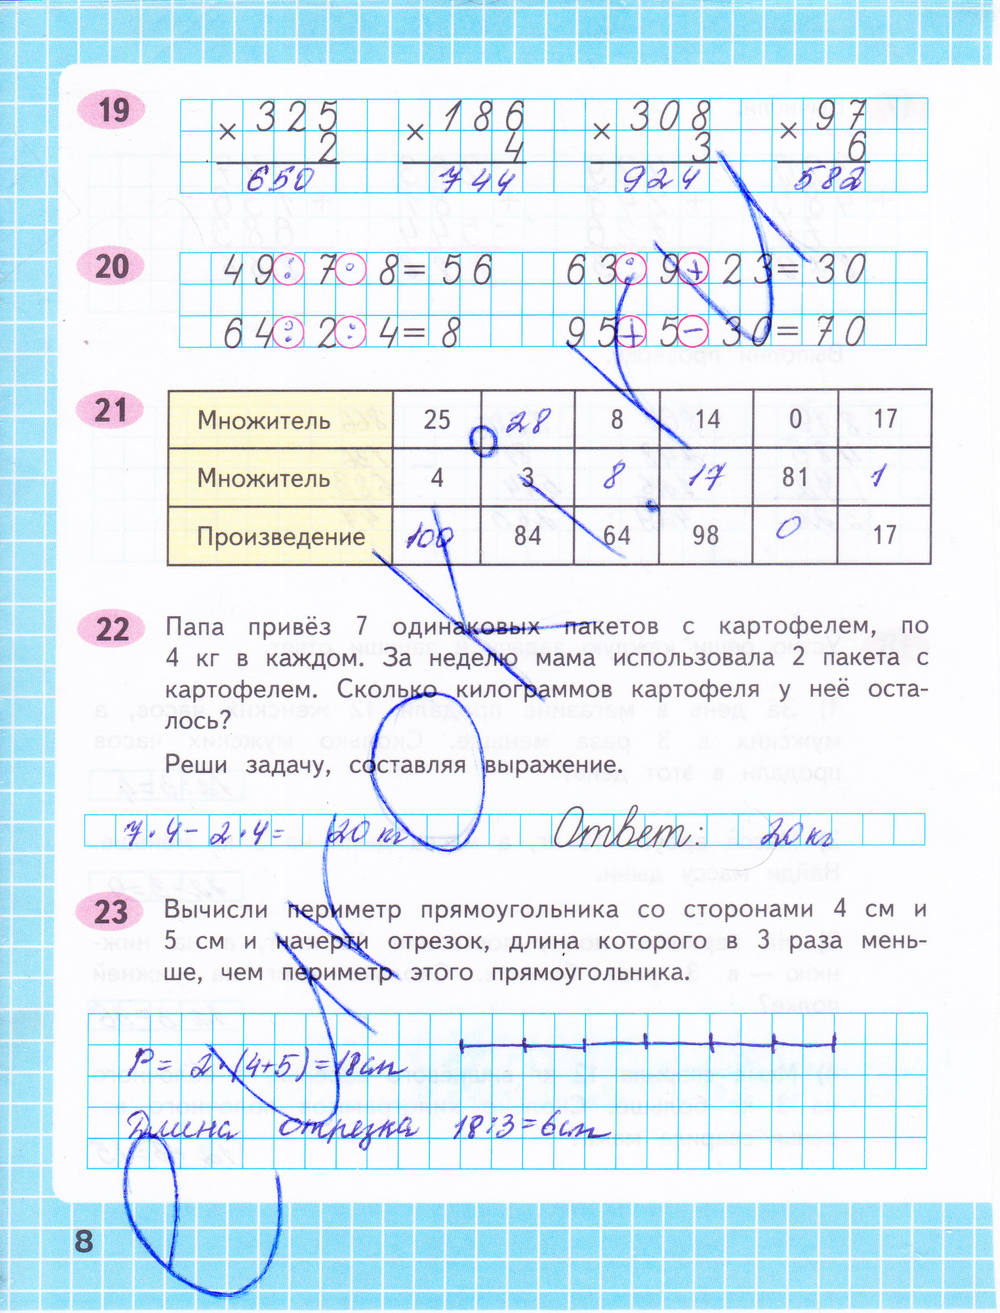 19
325 186 308 97
× 2 × 4 × 3 × 6
650 744 924 582
20
49 : 7 · 8 = 56 63 : 9 + 23 = 30
64 : 2 : 4 = 8 95 + 5 − 30 = 70
21
Множитель 25 28 8 14 0 17
Множитель 4 3 8 17 81 1
Произведение 100 84 64 98 0 17
22 Папа привёз 7 одинаковых пакетов с картофелем, по
4 кг в каждом. За неделю мама использовала 2 пакета с
картофелем. Сколько килограммов картофеля у неё оста-
лось?
Реши задачу, составляя выражение.
7 · 4 − 2 · 4 = 20 кг Ответ: 20 кг
23 Вычисли периметр прямоугольника со сторонами 4 см и
5 см и начерти отрезок, длина которого в 3 раза мень-
ше, чем периметр этого прямоугольника.
P = 2 · (4+5) = 18 см
Длина отрезка 18 : 3 = 6 см
8